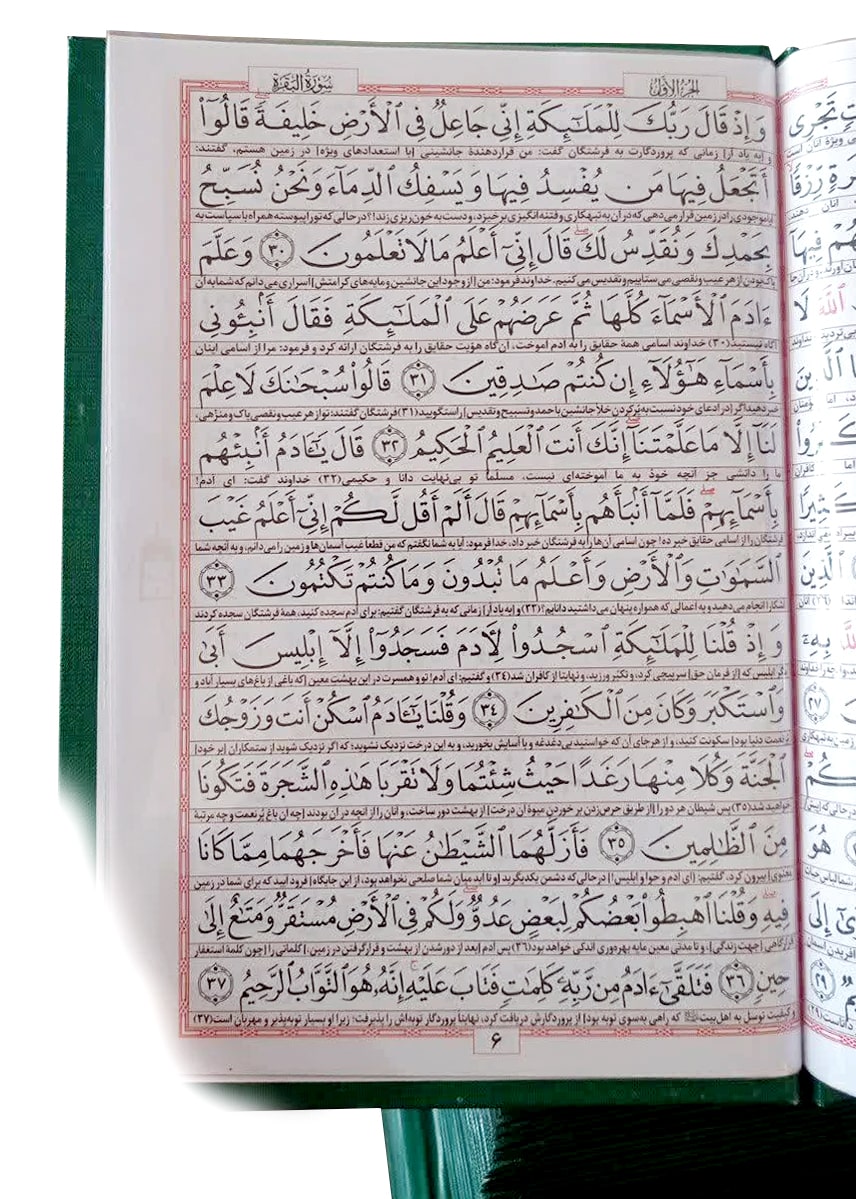 الجزء الأول
سورة البقرة
وَإِذْ قَالَ رَبُّكَ لِلْمَلَـٰٓئِكَةِ إِنِّى جَاعِلٌ فِى ٱلْأَرْضِ خَلِيفَةً قَالُوٓا۟
و [به یاد آر] زمانی که پروردگارت به فرشتگان گفت: من قراردهندهٔ جانشینی [با استعدادهای ویژه] در زمین هستم، گفتند:
أَتَجْعَلُ فِيهَا مَن يُفْسِدُ فِيهَا وَيَسْفِكُ ٱلدِّمَآءَ وَنَحْنُ نُسَبِّحُ
موجودی را در زمین قرار می‌دهی که در آن به تبهکاری و فتنه‌انگیزی برخیزد، و دست به خون‌ریزی زند؟! در حالی که تو را پیوسته همراه با سپاست به
بِحَمْدِكَ وَنُقَدِّسُ لَكَ ۖ قَالَ إِنِّىٓ أَعْلَمُ مَا لَا تَعْلَمُونَ ٣٠ وَعَلَّمَ
پاک بودن از هر عیب و نقصی می‌ستاییم و تقدیس می‌کنیم. خداوند فرمود: من [از وجود این جانشین و مایه‌های کرامتش] اسراری می‌دانم که شما به آن
ءَادَمَ ٱلْأَسْمَآءَ كُلَّهَا ثُمَّ عَرَضَهُمْ عَلَى ٱلْمَلَـٰٓئِكَةِ فَقَالَ أَنۢبِـُٔونِى
آگاه نیستید (۳۰) خداوند اسامی همهٔ حقایق را به آدم آموخت، آن‌گاه هویت حقایق را به فرشتگان ارائه کرد و فرمود: مرا از اسامی اینان
بِأَسْمَآءِ هَـٰٓؤُلَآءِ إِن كُنتُمْ صَـٰدِقِينَ ٣١ قَالُوا۟ سُبْحَـٰنَكَ لَا عِلْمَ
خبر دهید اگر [در ادعای خود نسبت به پُر کردن خلأ جانشین با حمد و تسبیح و تقدیس] راستگویید (۳۱) فرشتگان گفتند: تو از هر عیب و نقصی پاک و منزّهی،
لَنَآ إِلَّا مَا عَلَّمْتَنَآ ۖ إِنَّكَ أَنتَ ٱلْعَلِيمُ ٱلْحَكِيمُ ٣٢ قَالَ يَـٰٓـَٔادَمُ أَنۢبِئْهُم
ما را دانشی جز آنچه خودْ به ما آموخته‌ای نیست، مسلماً تو بی‌نهایت دانا و حکیمی (۳۲) خداوند گفت: ای آدم!
بِأَسْمَآئِهِمْ ۖ فَلَمَّآ أَنۢبَأَهُم بِأَسْمَآئِهِمْ قَالَ أَلَمْ أَقُل لَّكُمْ إِنِّىٓ أَعْلَمُ غَيْبَ
فرشتگان را از اسامی حقایق خبر ده! چون اسامی آن‌ها را به فرشتگان خبر داد، خدا فرمود: آیا به شما نگفتم که من قطعا غیب آسمان‌ها و زمین را می‌دانم، و به آنچه شما
ٱلسَّمَـٰوَٰتِ وَٱلْأَرْضِ وَأَعْلَمُ مَا تُبْدُونَ وَمَا كُنتُمْ تَكْتُمُونَ ٣٣
آشکارا انجام می‌دهید و به اعمالی که همواره پنهان می‌داشتید دانایم؟ (۳۳) و [به یاد آر] زمانی که به فرشتگان گفتیم: برای آدم سجده کنید، همهٔ فرشتگان سجده کردند
وَإِذْ قُلْنَا لِلْمَلَـٰٓئِكَةِ ٱسْجُدُوا۟ لِـَٔادَمَ فَسَجَدُوٓا۟ إِلَّآ إِبْلِيسَ أَبَىٰ
ابلیس که [از فرمان حق] سرپیچی کرد، و تکبّر ورزید، و نهایتا از کافران شد (۳۴) و گفتیم: ای آدم! تو و همسرت در این بهشت معین [که باغی از باغ‌های بسیار آباد و
وَٱسْتَكْبَرَ وَكَانَ مِنَ ٱلْكَـٰفِرِينَ ٣٤ وَقُلْنَا يَـٰٓـَٔادَمُ ٱسْكُنْ أَنتَ وَزَوْجُكَ
پرنعمت دنیا بود] سکونت کنید، و از هر جای آن که خواستید بی‌دغدغه و با آسایش بخورید، و به این درخت نزدیک نشوید؛ که اگر نزدیک شوید از ستمکاران [بر خود]
ٱلْجَنَّةَ وَكُلَا مِنْهَا رَغَدًا حَيْثُ شِئْتُمَا وَلَا تَقْرَبَا هَـٰذِهِ ٱلشَّجَرَةَ فَتَكُونَا
خواهید شد (۳۵) پس شیطان هر دو را [از طریق حرص زدن بر خوردن میوهٔ آن درخت] از بهشت دور ساخت، و آنان را از آنچه در آن بودند [چه آن باغ پُرنعمت و چه مرتبهٔ
مِنَ ٱلظَّـٰلِمِينَ ٣٥ فَأَزَلَّهُمَا ٱلشَّيْطَـٰنُ عَنْهَا فَأَخْرَجَهُمَا مِمَّا كَانَا
معنوی] بیرون کرد، گفتیم: [ای آدم و حوا و ابلیس!] در حالی که دشمن یکدیگرید [و تا ابد میان شما صلحی نخواهد بود، از این جایگاه] فرود آیید که برای شما در زمین
فِيهِ ۖ وَقُلْنَا ٱهْبِطُوا۟ بَعْضُكُمْ لِبَعْضٍ عَدُوٌّ ۖ وَلَكُمْ فِى ٱلْأَرْضِ مُسْتَقَرٌّ وَمَتَـٰعٌ إِلَىٰ
قرارگاهی [جهت زندگی]، و تا مدتی معین مایه بهره‌وری اندکی خواهد بود (۳۶) پس آدم [بعد از دور شدن از بهشت و قرار گرفتن در زمین،] کلماتی را [چون کلمهٔ استغفار
حِينٍ ٣٦ فَتَلَقَّىٰٓ ءَادَمُ مِن رَّبِّهِۦ كَلِمَـٰتٍ فَتَابَ عَلَيْهِ ۚ إِنَّهُۥ هُوَ ٱلتَّوَّابُ ٱلرَّحِيمُ ٣٧
و کیفیت توسل به اهل‌بیت که راهی به‌سوی توبه بود] از پروردگارش دریافت کرد، نهایتاً پروردگار توبه‌اش را پذیرفت؛ زیرا او بسیار توبه‌پذیر و مهربان است (۳۷)
۶